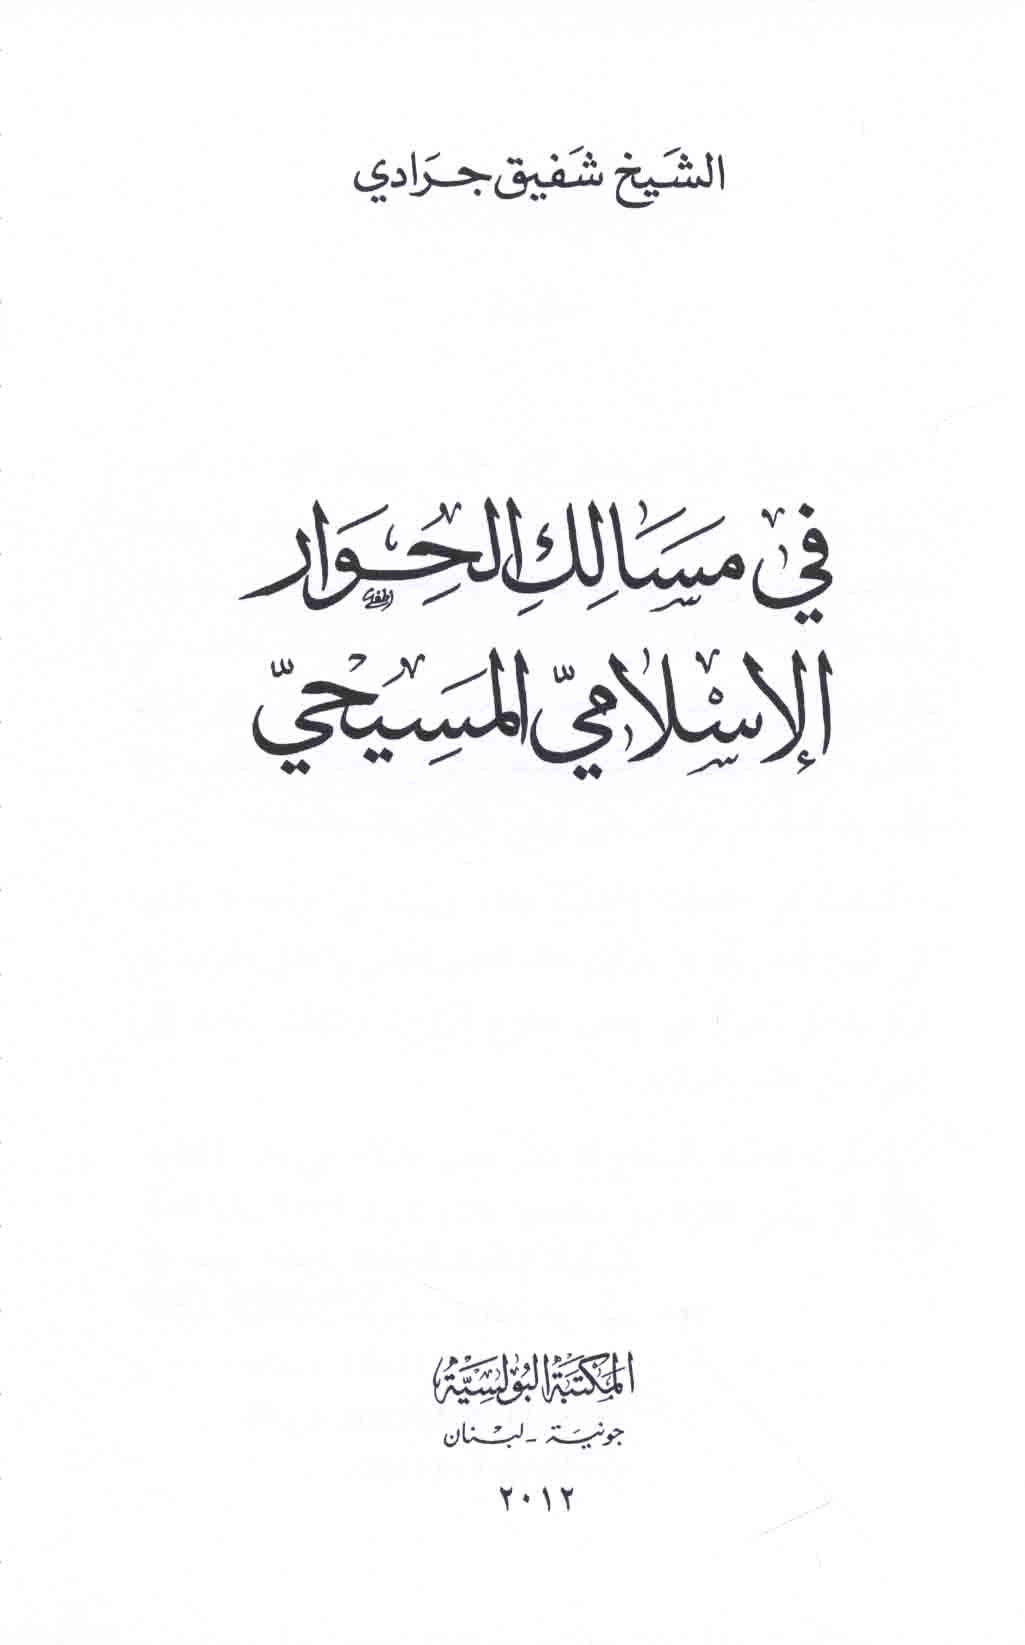 الشيخ شفيق جرادي
في مسالك الحوار
الإسلاميّ المسيحيّ
المكتبة البولسية
جونية - لبنان
٢٠١٢